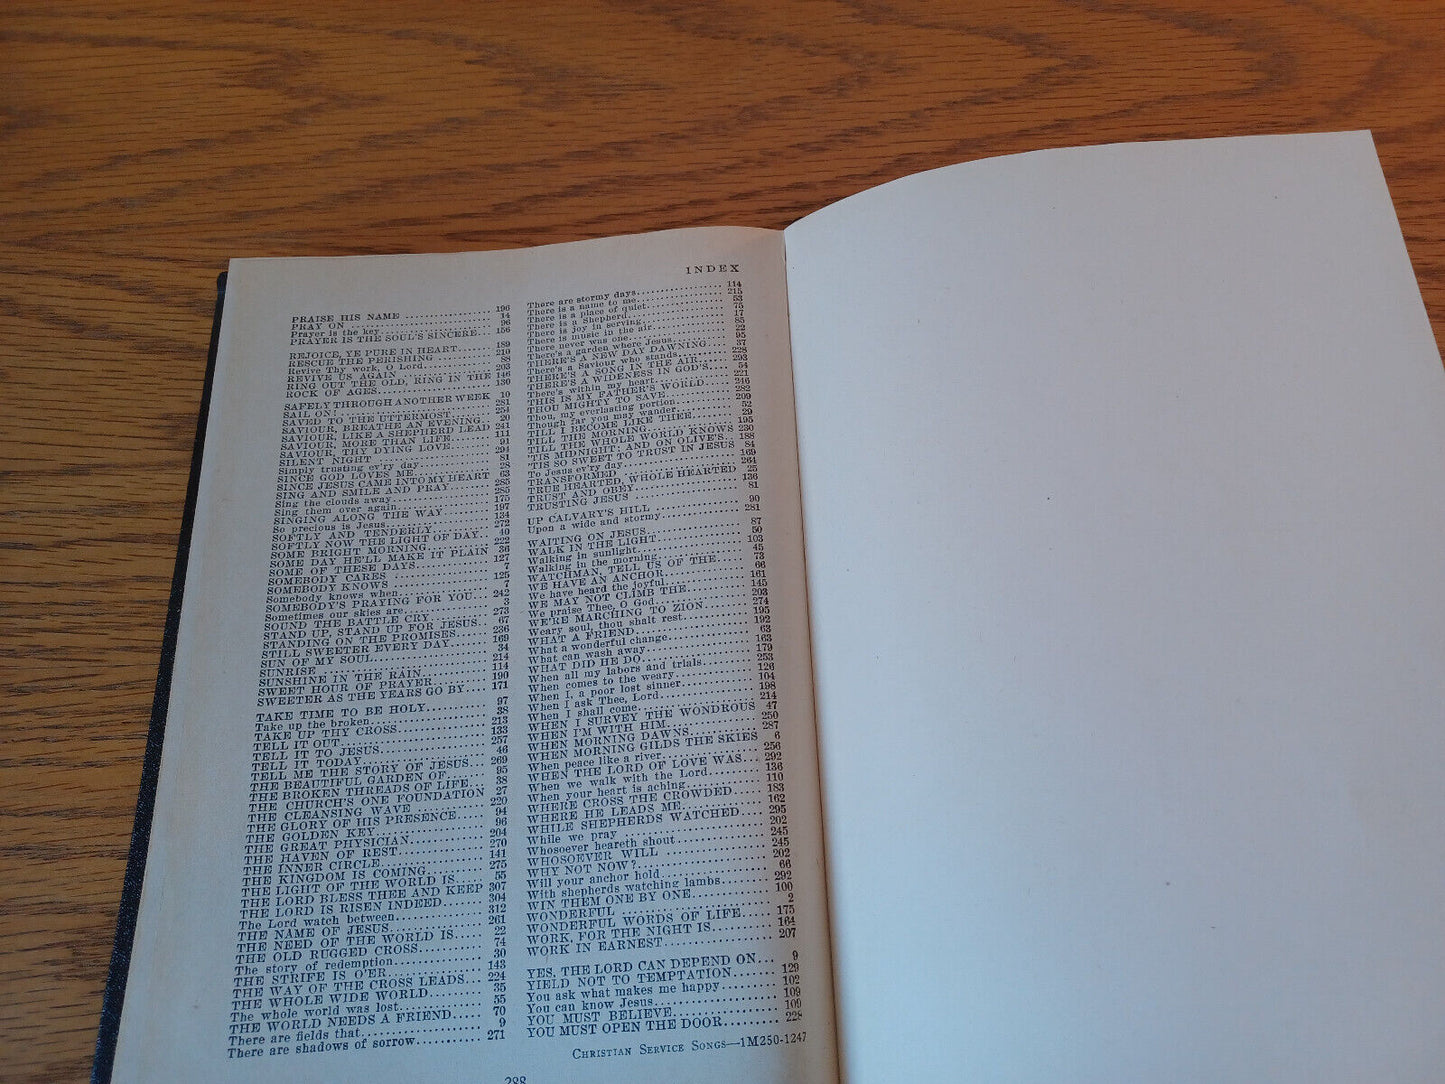 INDEX
PRAISE HIS NAME 196
PRAY ON 14
Prayer is the key 96
PRAYER IS THE SOUL'S SINCERE 156
REJOICE, YE PURE IN HEART 189
RESCUE THE PERISHING 210
Revive Thy work, O Lord 88
REVIVE US AGAIN 203
RING OUT THE OLD, RING IN THE 146
ROCK OF AGES 130
SAFELY THROUGH ANOTHER WEEK 10
SAIL ON! 281
SAVED TO THE UTTERMOST 254
SAVIOUR, BREATHE AN EVENING 20
SAVIOUR, LIKE A SHEPHERD LEAD 241
SAVIOUR, MORE THAN LIFE 111
SAVIOUR, THY DYING LOVE 91
SILENT NIGHT 294
Simply trusting ev'ry day 81
SINCE GOD LOVES ME 28
SINCE JESUS CAME INTO MY HEART 63
SING AND SMILE AND PRAY 285
Sing the clouds away 285
Sing them over again 175
SINGING ALONG THE WAY 197
So precious is Jesus 134
SOFTLY AND TENDERLY 272
SOFTLY NOW THE LIGHT OF DAY 40
SOME BRIGHT MORNING 222
SOME DAY HE'LL MAKE IT PLAIN 36
SOME OF THESE DAYS 127
SOMEBODY CARES 7
SOMEBODY KNOWS 125
Somebody knows when 7
SOMEBODY'S PRAYING FOR YOU 242
Sometimes our skies are 3
SOUND THE BATTLE CRY 273
STAND UP, STAND UP FOR JESUS 67
STANDING ON THE PROMISES 236
STILL SWEETER EVERY DAY 169
SUN OF MY SOUL 34
SUNRISE 214
SUNSHINE IN THE RAIN 114
SWEET HOUR OF PRAYER 190
SWEETER AS THE YEARS GO BY 171
TAKE TIME TO BE HOLY 97
Take up the broken 38
TAKE UP THY CROSS 213
TELL IT OUT 133
TELL IT TO JESUS 257
TELL IT TODAY 46
TELL ME THE STORY OF JESUS 269
THE BEAUTIFUL GARDEN OF 95
THE BROKEN THREADS OF LIFE 38
THE CHURCH'S ONE FOUNDATION 27
THE CLEANSING WAVE 220
THE GLORY OF HIS PRESENCE 94
THE GOLDEN KEY 96
THE GREAT PHYSICIAN 204
THE HAVEN OF REST 270
THE INNER CIRCLE 141
THE KINGDOM IS COMING 275
THE LIGHT OF THE WORLD IS 55
THE LORD BLESS THEE AND KEEP 307
THE LORD IS RISEN INDEED 304
The Lord watch between 312
THE NAME OF JESUS 261
THE NEED OF THE WORLD IS 22
THE OLD RUGGED CROSS 74
The story of redemption 30
THE STRIFE IS O'ER 143
THE WAY OF THE CROSS LEADS 224
THE WHOLE WIDE WORLD 35
The whole world was lost 55
THE WORLD NEEDS A FRIEND 70
There are fields that 9
There are shadows of sorrow 271
There are stormy days 114
There is a name to me 215
There is a place of quiet 53
There is a Shepherd 75
There is joy in serving 17
There is music in the air 85
There never was one 22
There's a garden where Jesus 95
THERE'S A NEW DAY DAWNING 37
There's a Saviour who stands 228
THERE'S A SONG IN THE AIR 293
THERE'S A WIDENESS IN GOD'S 54
There's within my heart 221
THIS IS MY FATHER'S WORLD 246
THOU MIGHTY TO SAVE 282
Thou, my everlasting portion 209
Though far you may wander 52
TILL I BECOME LIKE THEE 29
TILL THE MORNING 195
TILL THE WHOLE WORLD KNOWS 230
'TIS MIDNIGHT; AND ON OLIVE'S 188
'TIS SO SWEET TO TRUST IN JESUS 84
To Jesus ev'ry day 169
TRANSFORMED 264
TRUE HEARTED, WHOLE HEARTED 25
TRUST AND OBEY 136
TRUSTING JESUS 81
UP CALVARY'S HILL 90
Upon a wide and stormy 281
WAITING ON JESUS 87
WALK IN THE LIGHT 50
Walking in sunlight 103
Walking in the morning 45
WATCHMAN, TELL US OF THE 73
WE HAVE AN ANCHOR 66
We have heard the joyful 161
WE MAY NOT CLIMB THE 145
We praise Thee, O God 203
WE'RE MARCHING TO ZION 274
Weary soul, thou shalt rest 195
WHAT A FRIEND 192
What a wonderful change 63
What can wash away 163
WHAT DID HE DO 179
When all my labors and trials 253
When comes to the weary 126
When I, a poor lost sinner 104
When I ask Thee, Lord 198
When I shall come 214
WHEN I SURVEY THE WONDROUS 47
WHEN I'M WITH HIM 250
WHEN MORNING DAWNS 287
WHEN MORNING GILDS THE SKIES 6
When peace like a river 256
WHEN THE LORD OF LOVE WAS 292
When we walk with the Lord 136
When your heart is aching 110
WHERE CROSS THE CROWDED 183
WHERE HE LEADS ME 162
WHILE SHEPHERDS WATCHED 295
While we pray 202
Whosoever heareth shout 245
WHOSOEVER WILL 245
WHY NOT NOW? 202
Will your anchor hold 66
With shepherds watching lambs 292
WIN THEM ONE BY ONE 100
WONDERFUL 2
WONDERFUL WORDS OF LIFE 175
WORK, FOR THE NIGHT IS 164
WORK IN EARNEST 207
YES, THE LORD CAN DEPEND ON 9
YIELD NOT TO TEMPTATION 129
You ask what makes me happy 102
You can know Jesus 109
YOU MUST BELIEVE 109
YOU MUST OPEN THE DOOR 228
CHRISTIAN SERVICE SONGS—1M250-1247
288